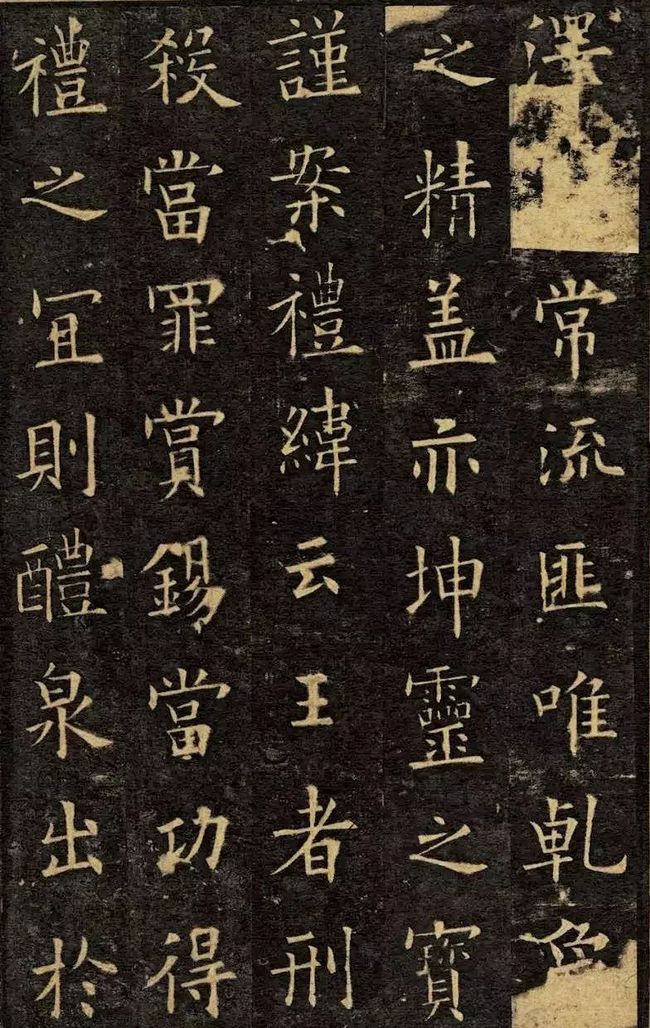 澤常流匪唯乹
之精盖亦坤靈之寶
謹案禮緯云王者刑
殺當罪賞錫當功得
禮之冝則醴泉出扵